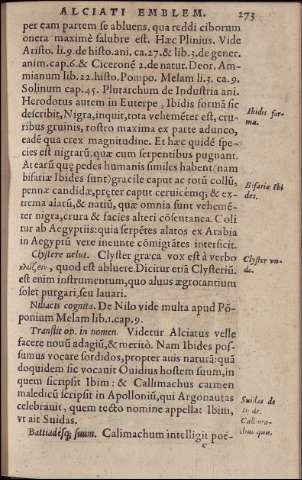 ALCIATI EMBLEM. 273
per eam partem se abluens, qua reddi ciborum
onera maximè salubre est. Hæc Plinius. Vide
Aristo. li. 9. de histo. ani. ca. 27. & lib. 3. de gener.
anim. cap. 6. & Ciceronē 2. de natur. Deor. Am-
mianum lib. 22. histo. Pompo. Melam li. 3. ca. 9.
Solinum cap. 45. Plutarchum de Industria ani.
Herodotus autem in Euterpe, Ibidis formā sic
describit, Nigra, inquit, tota vehemēter est, cru-
ribus gruinis, rostro maxima ex parte adunco,
eadē qua crex magnitudine. Et hæc quidē spe-
cies est nigrarū, quæ cum serpentibus pugnant.
At earū quę pedes humanis similes habent (nam
bifariæ Ibides sunt) gracile caput ac totū collū,
pennæ candidæ, pręter caput ceruicēmq; & ex-
trema alatū, & natiū, quæ omnia sunt vehemē-
ter nigra, crura & facies alteri cōsentanea. Coli
tur ab Aegyptiis: quia serpētes alatos ex Arabia
in Aegyptū vere ineunte cōmigrātes interficit.
Clystere velut. Clyster græca vox est à verbo
κλύζειν, quod est abluere. Dicitur etiā Clysteriū.
est enim instrumentum, quo aluus ægrotantium
solet purgari, seu lauari.
Niliacis cognita. De Nilo vide multa apud Pō-
ponium Melam lib. 1. cap. 9.
Transiit op. in nomen. Videtur Alciatus velle
facere nouū adagiū, & meritò. Nam Ibides pos-
sumus vocare sordidos, propter auis naturā: quā
doquidem sic vocauit Ouidius hostem suum, in
quem scripsit Ibim: & Callimachus carmen
maledicū scripsit in Apolloniū, qui Argonautas
celebrauit, quem tecto nomine appellat Ibim,
vt ait Suidas.
Battiadésq; suum. Callimachum intelligit poë-
Ibidis for-
ma.
Bifariæ Ibi
des.
Clyster vn-
de.
Suidas de